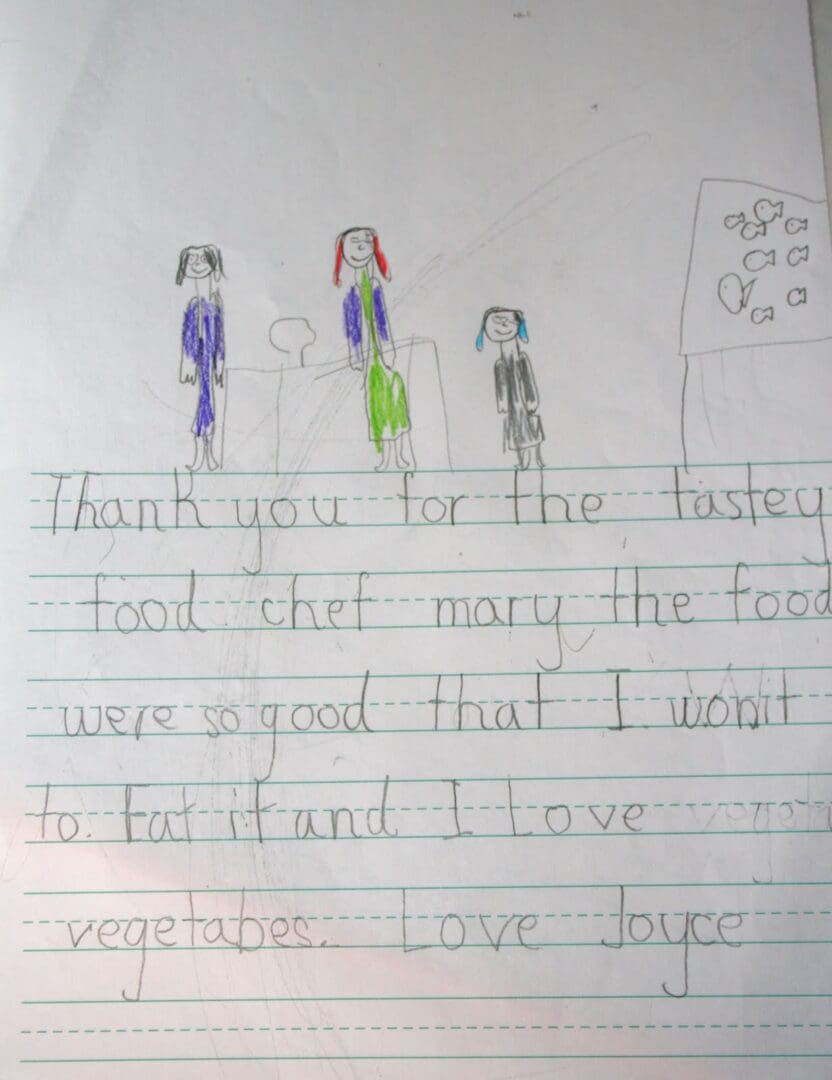 Thank you for the tastey
food chef mary the food
were so good that I won't
to. Eat it and I Love
vegetabes. Love Joyce